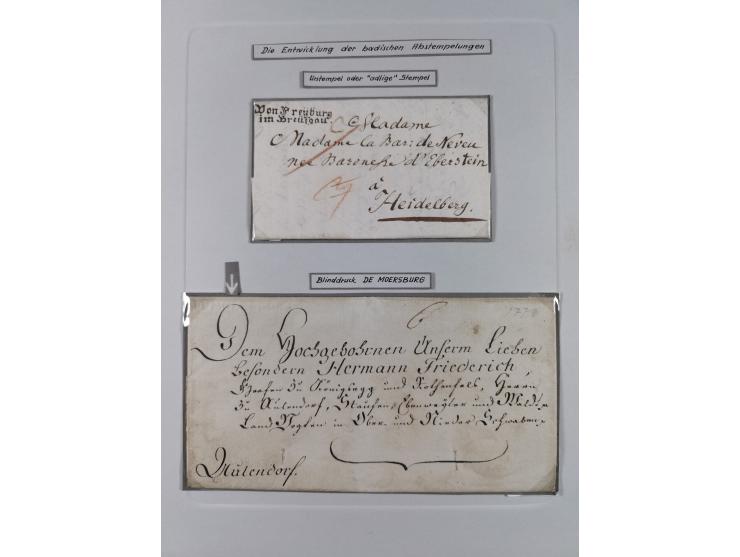 Die Entwicklung der badischen Abstempelungen
Unstempel oder "adlige" Stempel
Von Freyburg
im Breisgau.
Madame
Madame la Bar: de Neveu
nee Baronesse d'Eberstein
à
Heidelberg.
Blinddruck DE MOERSBURG
Dem Hochgebohrnen Unserm Lieben
besondern Hermann Friederich,
Grafen zu Königsegg und Rothenfels, Herrn
zu Aulendorf, Staufen, Ebenweyler und Wald
Land Vogten in Ober- und Nieder Schwaben
Aulendorf.